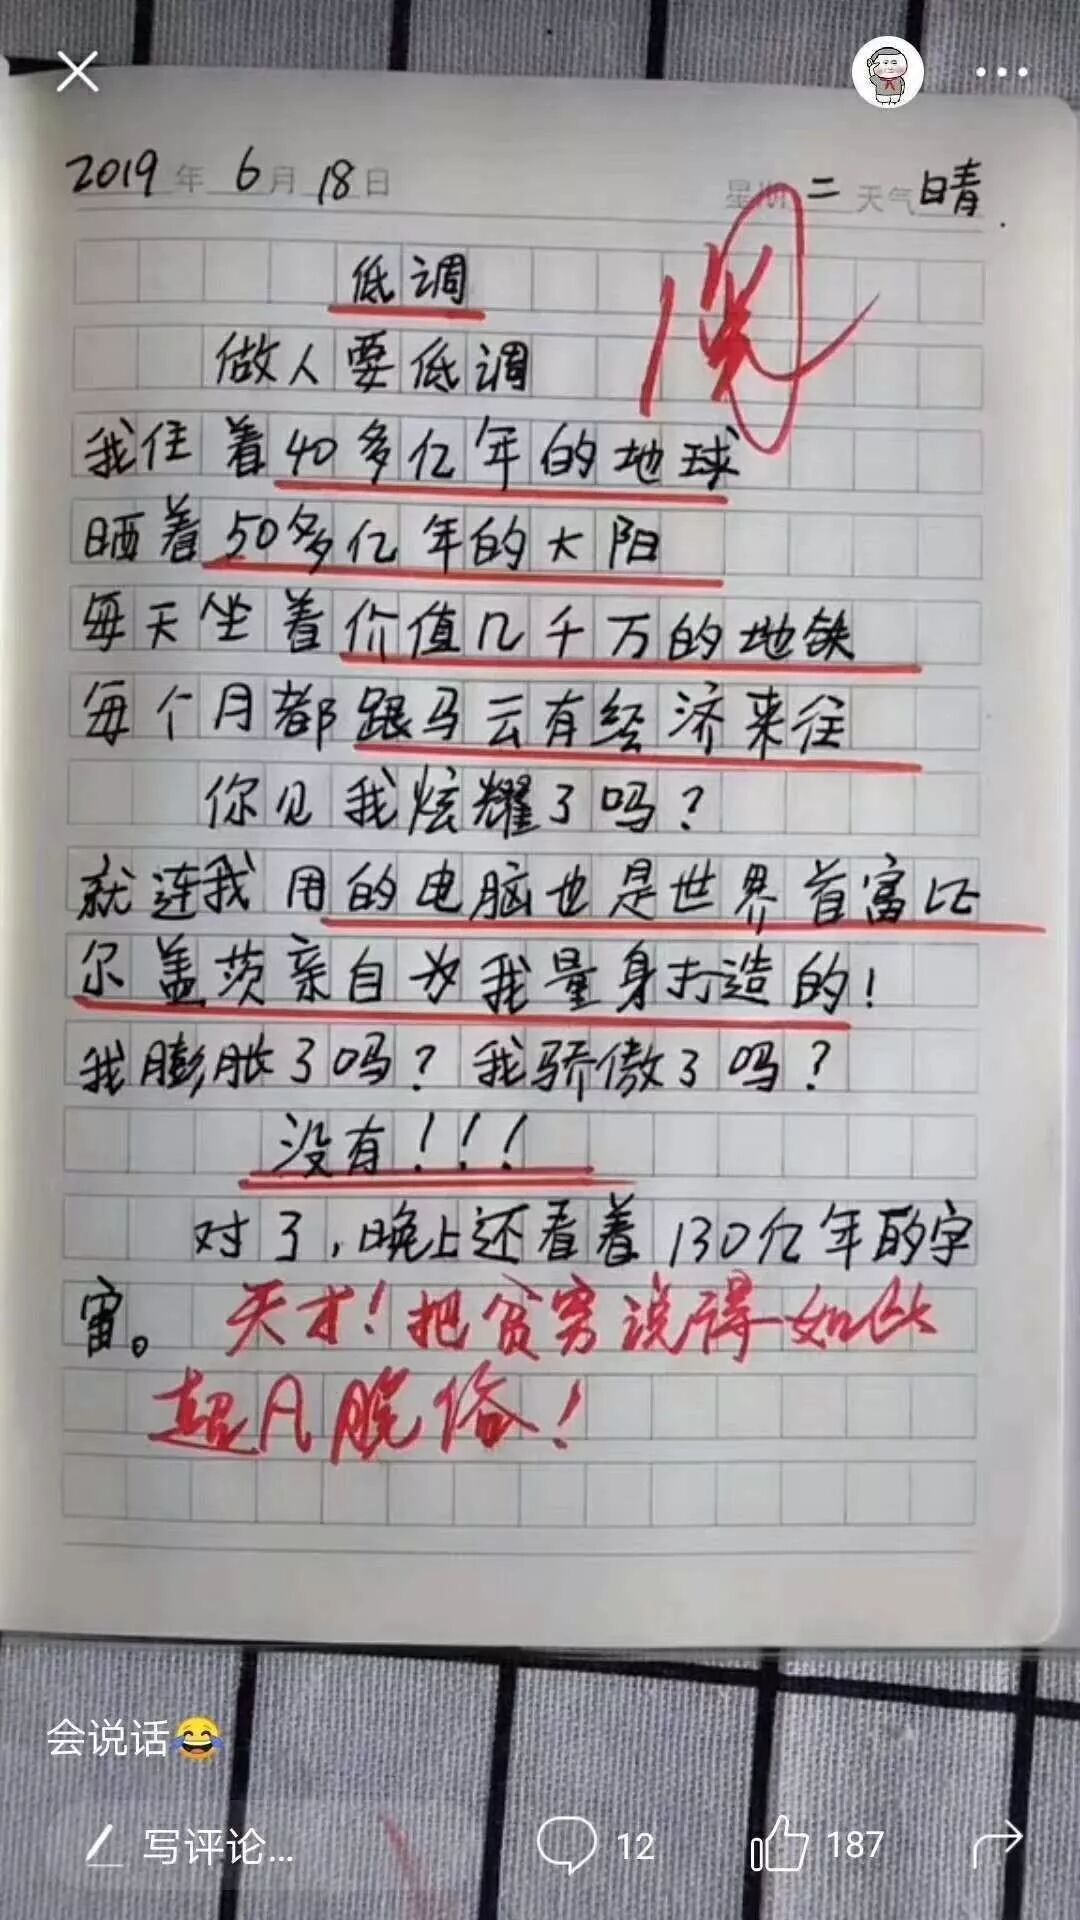 2019年 6月 18日 星期二 天气晴.
低调
做人要低调
我住着40多亿年的地球
晒着50多亿年的太阳
每天坐着价值几千万的地铁
每个月都跟马云有经济来往
你见我炫耀了吗?
就连我用的电脑也是世界首富比
尔盖茨亲自为我量身打造的!
我膨胀了吗?我骄傲了吗?
没有!!!
对了,晚上还看着130亿年的宇
宙。天才!把贫穷说得如此
超凡脱俗!
会说话😂
写评论...
12
187